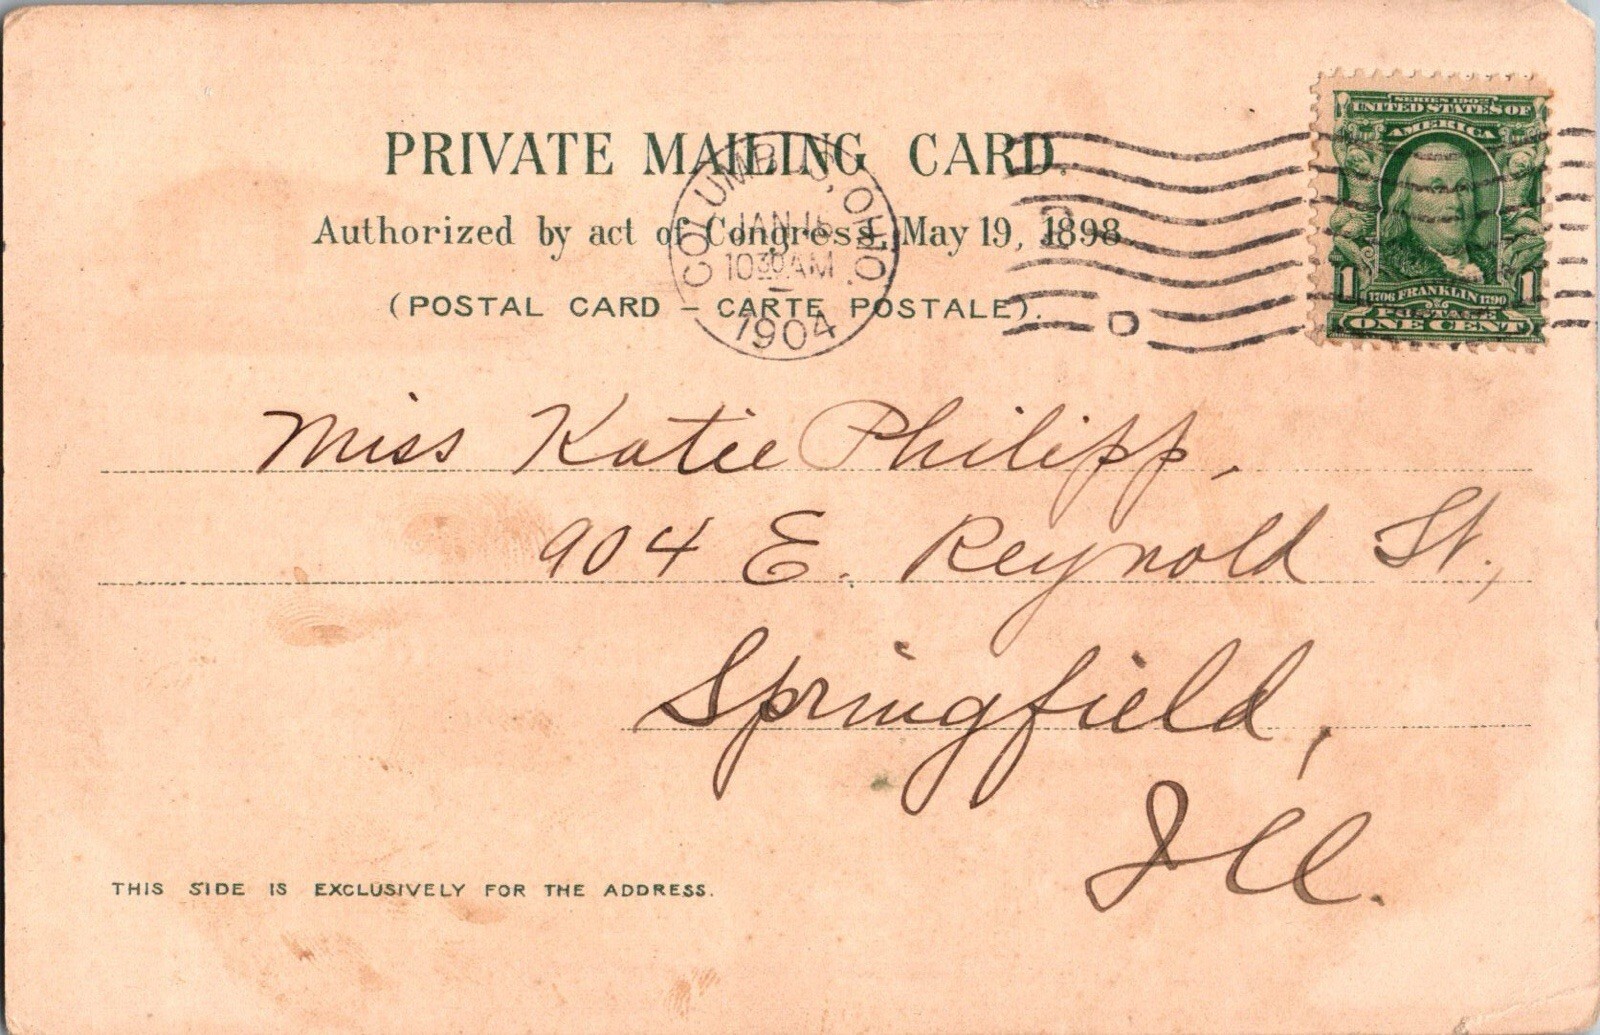 PRIVATE MAILING CARD.
Authorized by act of Congress, May 19, 1898.
(POSTAL CARD – CARTE POSTALE).
COLUMBUS, OHIO.
10 30 AM
1904
SERIES 1902
UNITED STATES OF
AMERICA
1 1
1706 FRANKLIN 1790
POSTAGE
ONE CENT
D
Miss Katie Philipp,
904 E. Reynold St.,
Springfield,
Ill.
THIS SIDE IS EXCLUSIVELY FOR THE ADDRESS.